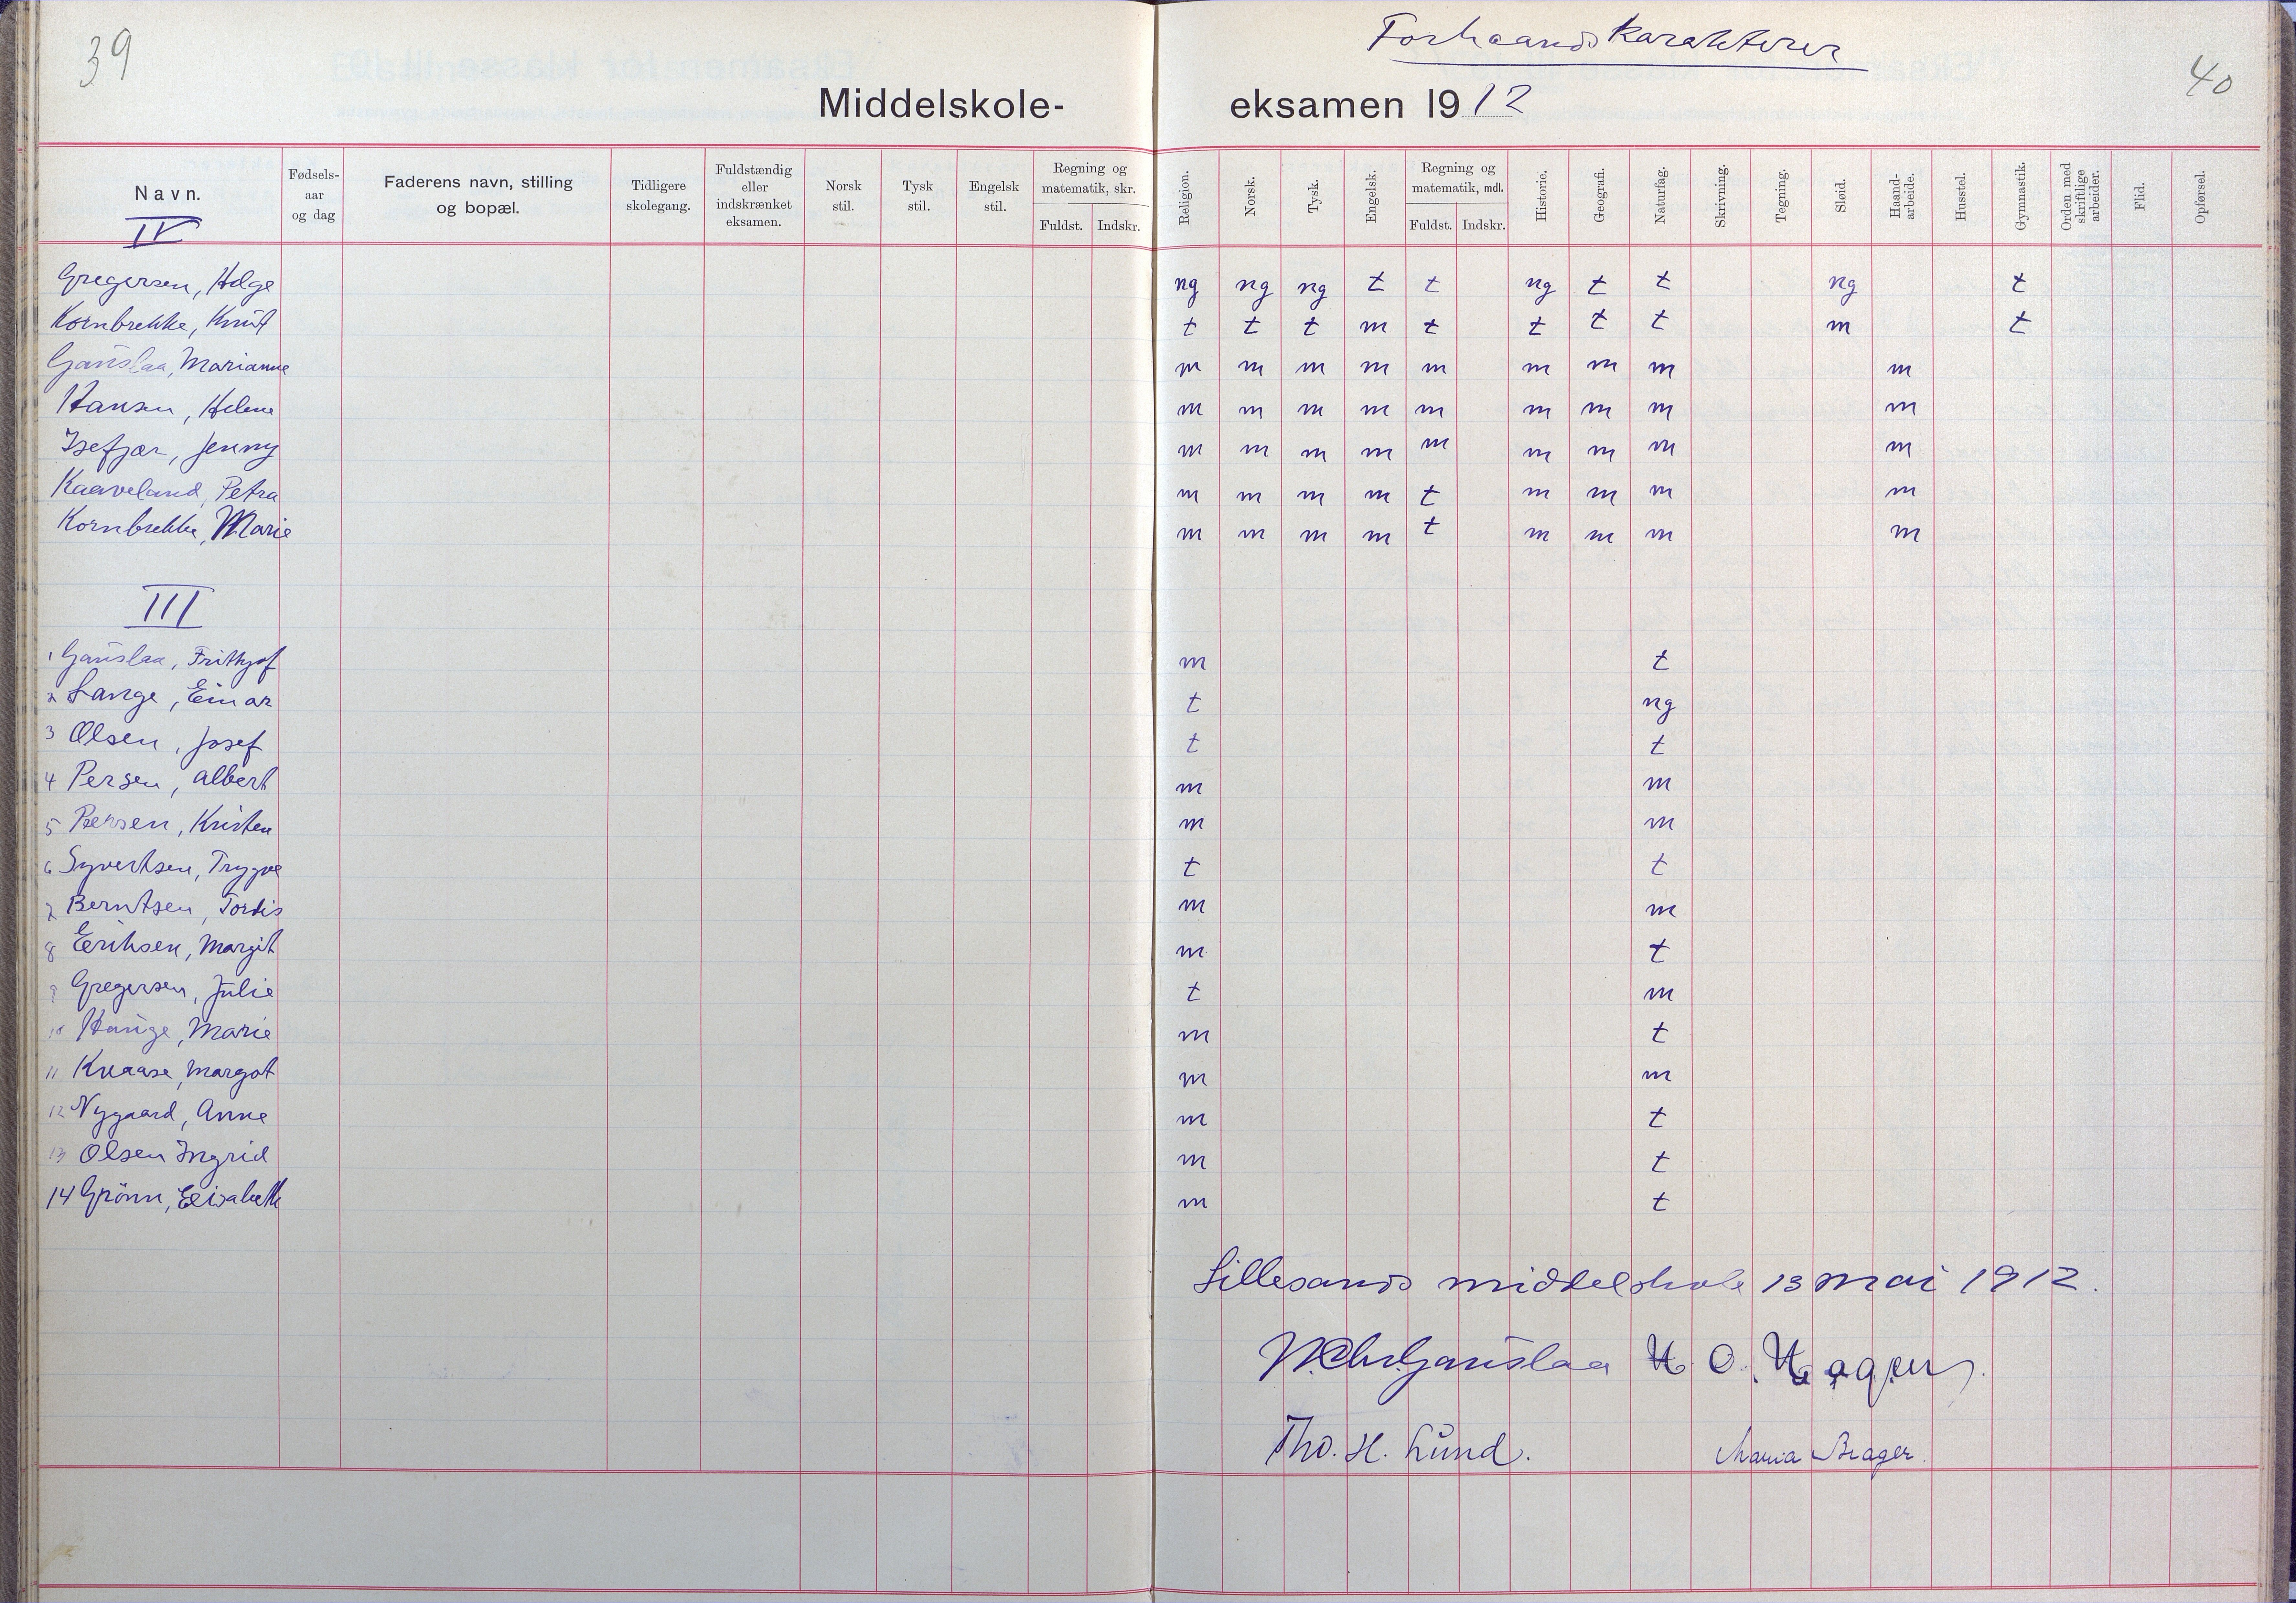 39
Forhaandskarakterer
40
Middelskole-eksamen 1912
Navn. Fødsels-aar og dag Faderens navn, stilling og bopæl. Tidligere skolegang. Fuldstændig eller indskrænket eksamen. Norsk stil. Tysk stil. Engelsk stil. Regning og matematik, skr. Fuldst. Indskr. Religion. Norsk. Tysk. Engelsk. Regning og matematik, mdl. Fuldst. Indskr. Historie. Geografi. Naturfag. Skrivning. Tegning. Sløid. Haand-arbeide. Husstel. Gymnastik. Orden med skriftlige arbeider. Flid. Opførsel.
IV
Gregersen, Helge ng ng ng t t ng t t ng t
Kornbrekke, Knut t t t m t t t t m t
Gauslaa, Marianne m m m m m m m m m
Hansen, Helene m m m m m m m m m
Isefjær, Jenny m m m m m m m m m
Kaaveland, Petra m m m m t m m m m
Kornbrekke, Marie m m m m t m m m m
III
1 Gauslaa, Frithjof m t
2 Lange, Einar t ng
3 Olsen, Josef t t
4 Persen, Albert m m
5 Persen, Kristen m m
6 Syvertsen, Trygve t t
7 Berntsen, Tordis m m
8 Eriksen, Margit m t
9 Gregersen, Julie t m
10 Hauge, Marie m t
11 Knaase, Margot m m
12 Nygaard, Anne m t
13 Olsen Ingrid m t
14 Grönn, Elisabeth m t
Lillesands middelskole 13 mai 1912.
Chr Gauslaa H. O. Hagen
Tho. H. Lund. Maria Brager.